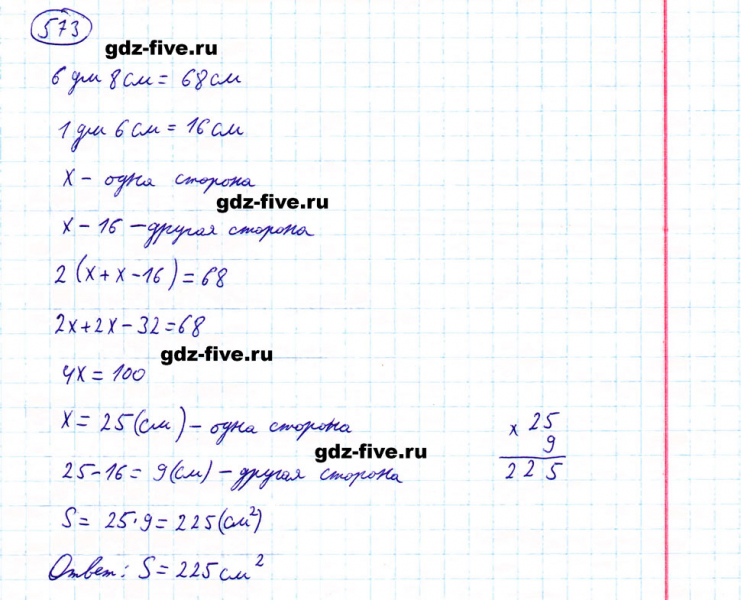 573
gdz-five.ru
6 дм 8 см = 68 см
1 дм 6 см = 16 см
x - одна сторона
gdz-five.ru
x - 16 - другая сторона
2 (x + x - 16) = 68
2x + 2x - 32 = 68
gdz-five.ru
4x = 100
x = 25 (см) - одна сторона
gdz-five.ru
25 - 16 = 9 (см) - другая сторона
S = 25 · 9 = 225 (см²)
Ответ: S = 225 см²
x 25
9
225